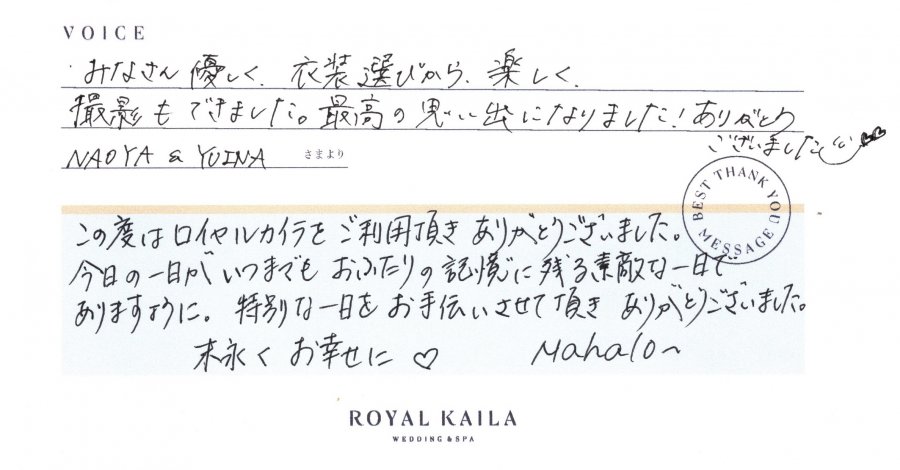 VOICE
みなさん優しく、衣装選びから、楽しく、
撮影もできました。最高の思い出になりました！ありがとう
ございました
NAOYA & YUINA さまより
BEST THANK YOU MESSAGE
この度はロイヤルカイラをご利用頂きありがとうございました。
今日の一日がいつまでもおふたりの記憶に残る素敵な一日で
ありますように。特別な一日をお手伝いさせて頂きありがとうございました。
末永くお幸せに♡ Mahalo~
ROYAL KAILA
WEDDING & SPA